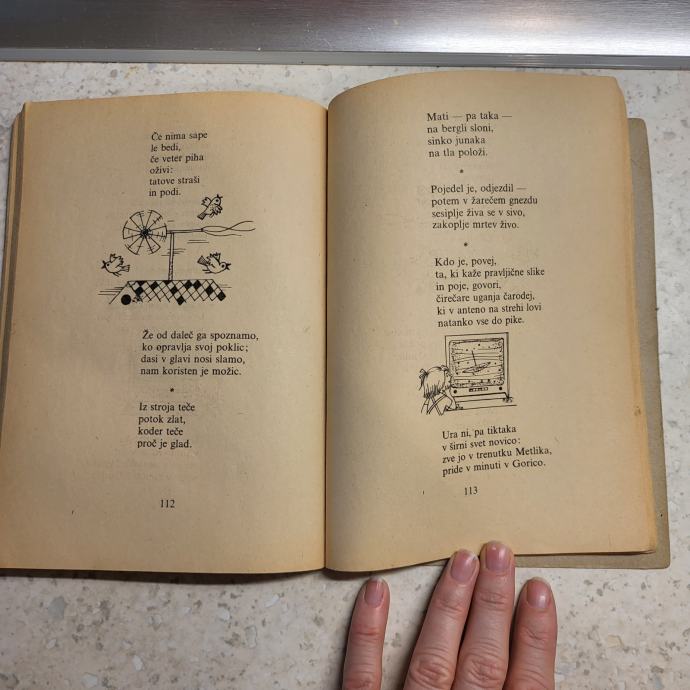 Če nima sape
le bedi,
če veter piha
oživi:
tatove straši
in podi.
Že od daleč ga spoznamo,
ko opravlja svoj poklic;
dasi v glavi nosi slamo,
nam koristen je možic.
*
Iz stroja teče
potok zlat,
koder teče
proč je glad.
112
Mati — pa taka —
na bergli sloni,
sinko junaka
na tla položi.
*
Pojedel je, odjezdil —
potem v žarečem gnezdu
sesiplje živa se v sivo,
zakoplje mrtev živo.
*
Kdo je, povej,
ta, ki kaže pravljične slike
in poje, govori,
čirečare uganja čarodej,
ki v anteno na strehi lovi
natanko vse do pike.
Ura ni, pa tiktaka
v širni svet novico:
zve jo v trenutku Metlika,
pride v minuti v Gorico.
113